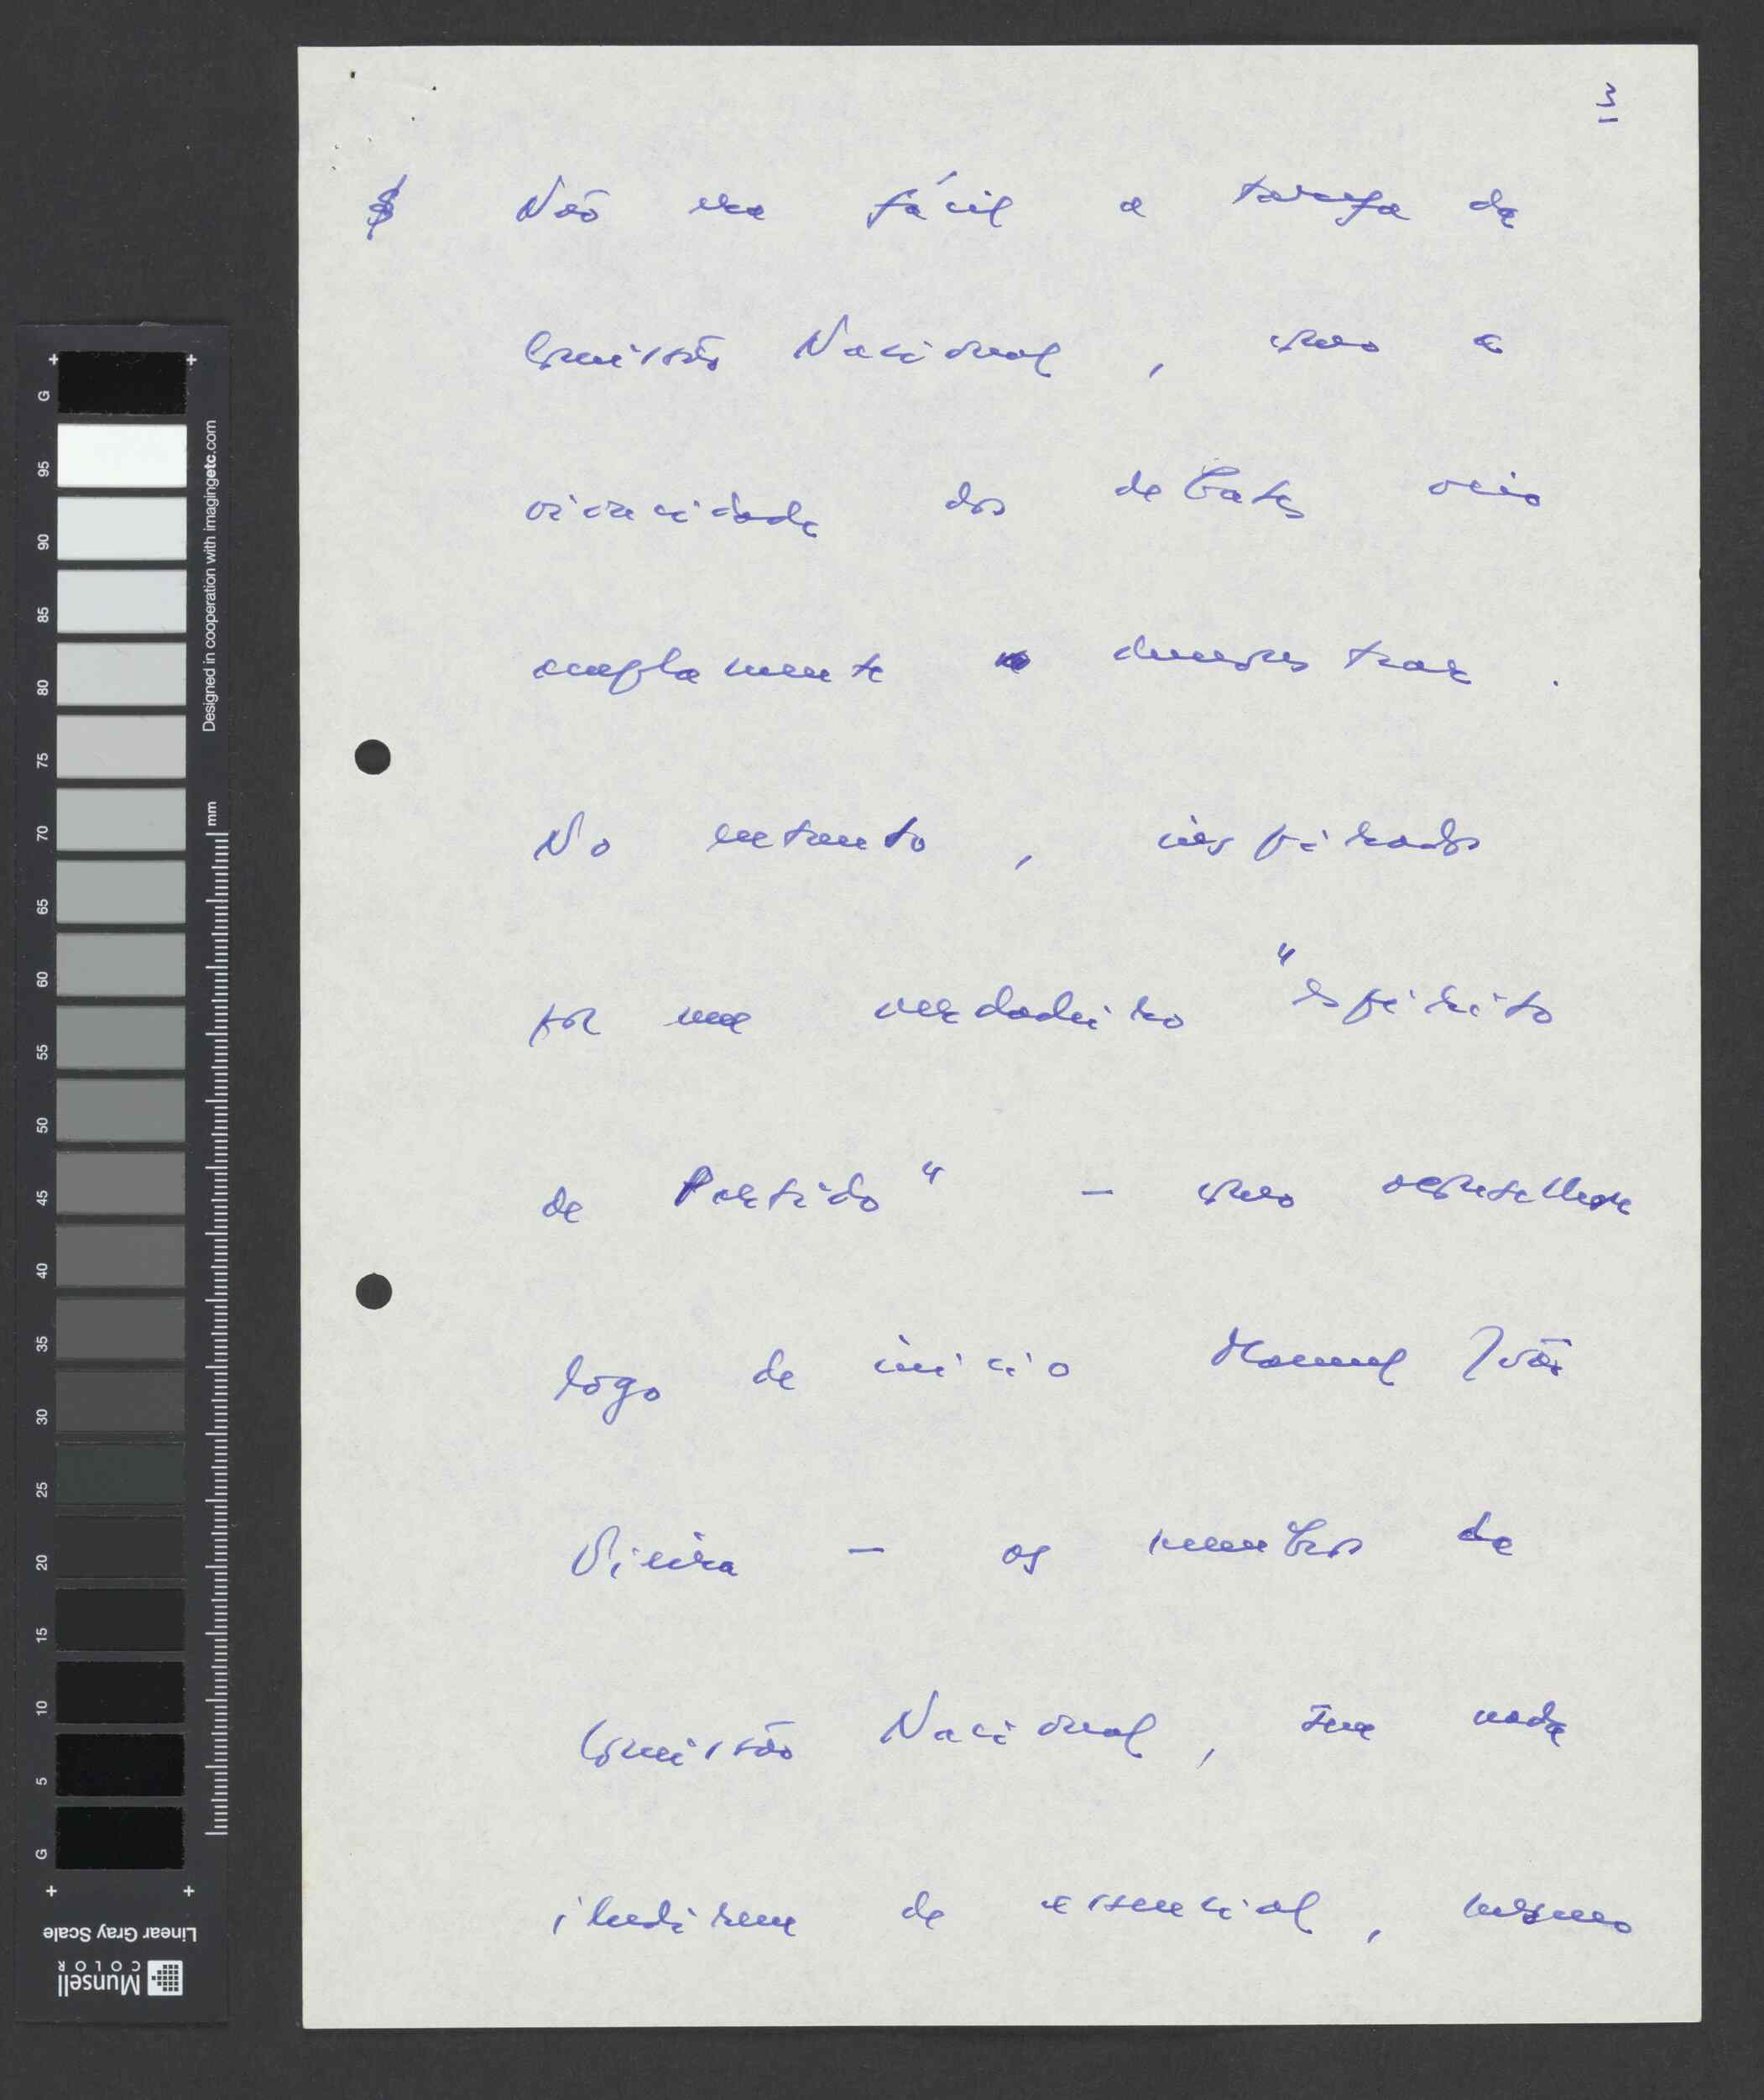 3
§ Não era fácil a tarefa da
Comissão Nacional, como a
vivacidade dos debates veio
amplamente demonstrar.
No entanto, inspirados
por um verdadeiro "espírito
de Partido" — como
logo de início Manuel João
Vieira — os membros da
Comissão Nacional, sem nada
iludirem de essencial, mesmo
G
95
90
85
80
75
70
65
60
55
50
45
40
35
30
25
20
15
10
5
G
Designed in cooperation with imagingetc.com
mm
Linear Gray Scale
Munsell
COLOR